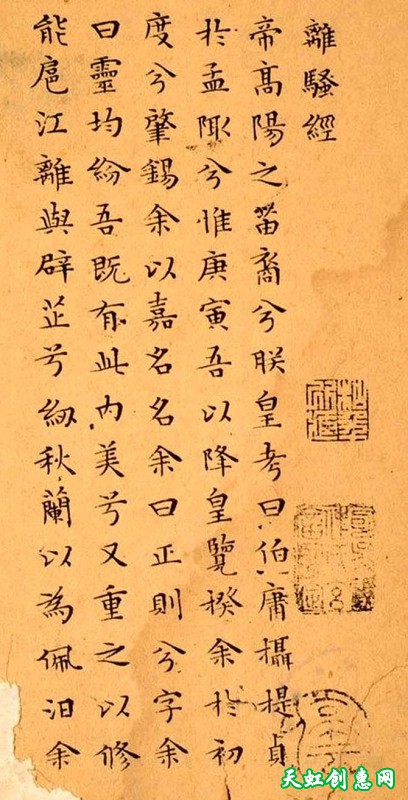 離騷經
帝高陽之苗裔兮朕皇考曰伯庸攝提貞
於孟陬兮惟庚寅吾以降皇覽揆余於初
度兮肇錫余以嘉名名余曰正則兮字余
曰靈均紛吾既有此內美兮又重之以修
能扈江離與辟芷兮紉秋蘭以為佩汩余
天虹创惠网